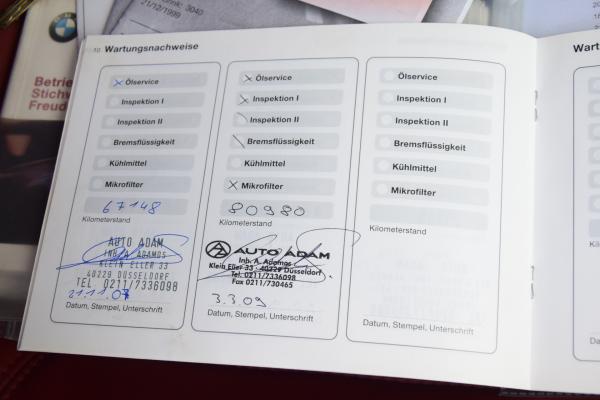 3040
21/12/1999
BMW
Betrie
Stichw
Freud
10 Wartungsnachweise
Ölservice
Inspektion I
Inspektion II
Bremsflüssigkeit
Kühlmittel
Mikrofilter
67148
Kilometerstand
AUTO ADAM
INH. A. ADAMOS
KLEIN ELLER 33
40229 DÜSSELDORF
TEL 0211/7336098
21.11.07
Datum, Stempel, Unterschrift
Ölservice
Inspektion I
Inspektion II
Bremsflüssigkeit
Kühlmittel
Mikrofilter
80980
Kilometerstand
AUTO ADAM
Inh. A. Adamos
Klein Eller 33 · 40229 Düsseldorf
Tel. 0211/7336098
Fax 0211/730465
3.3.09
Datum, Stempel, Unterschrift
Ölservice
Inspektion I
Inspektion II
Bremsflüssigkeit
Kühlmittel
Mikrofilter
Kilometerstand
Datum, Stempel, Unterschrift
Wart
Kilo
Da